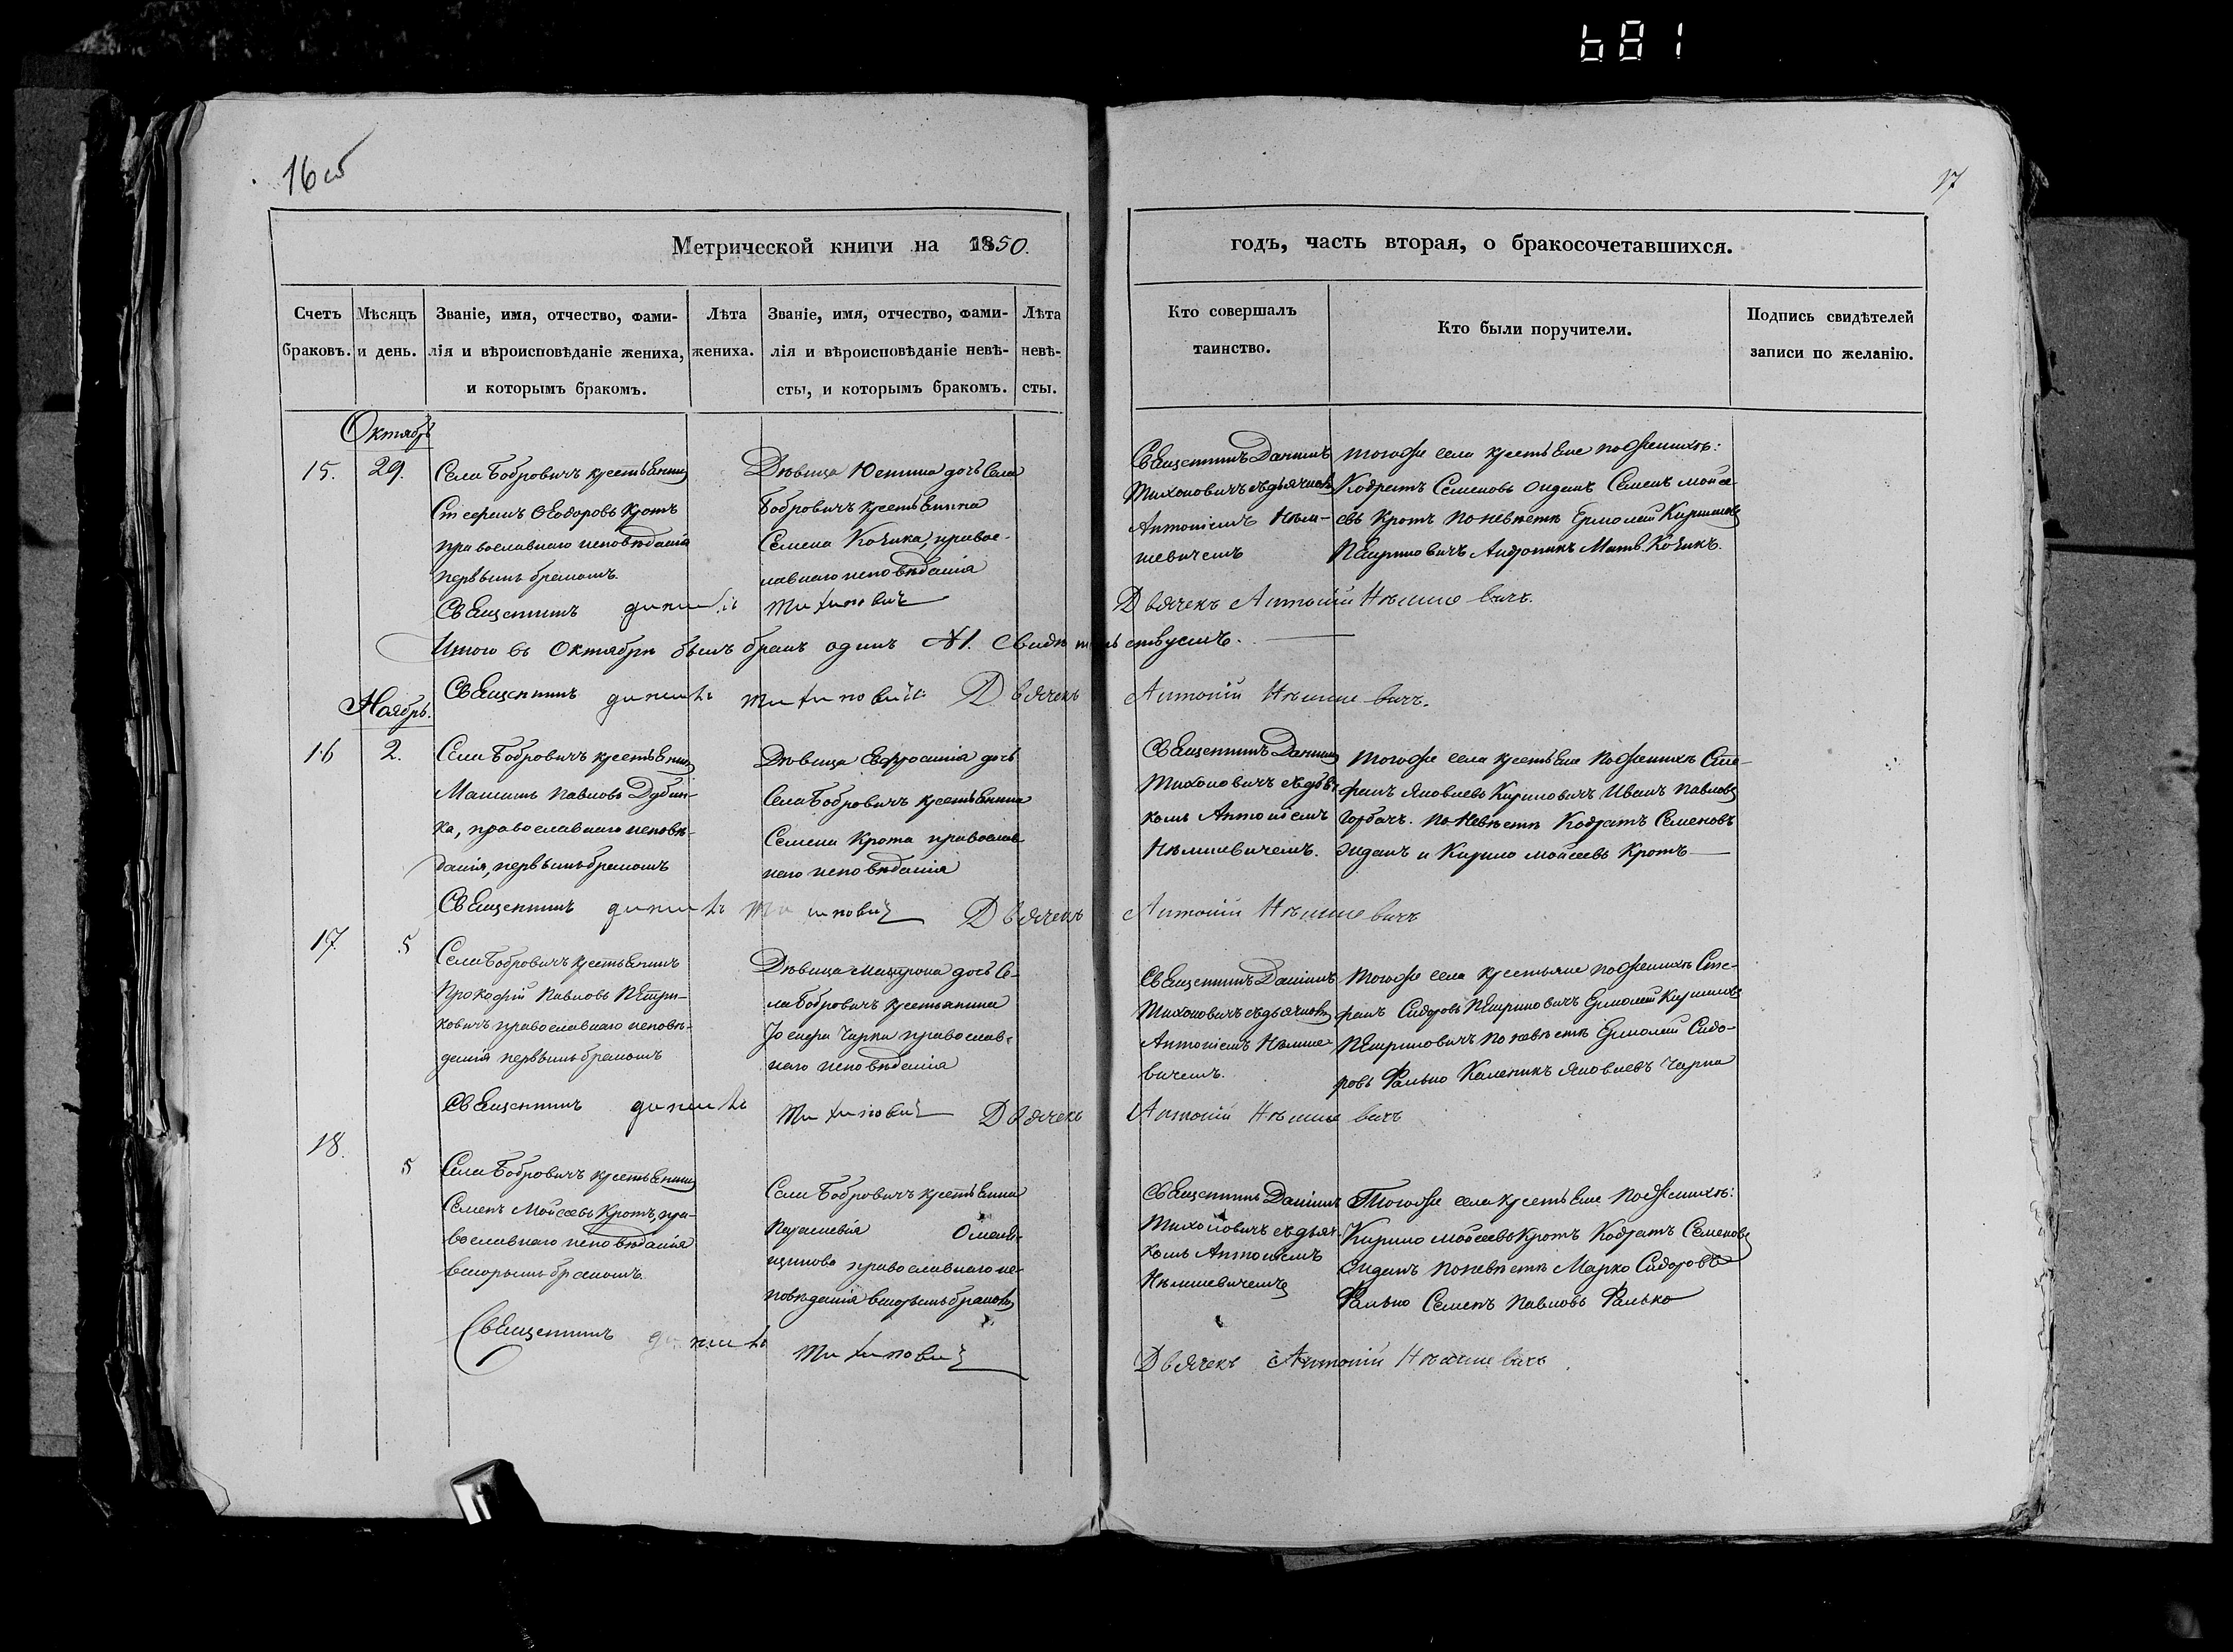 681
16 об
17
Метрической книги на 1850.
годъ, часть вторая, о бракосочетавшихся.
Счетъ браковъ.
Мѣсяцъ и день.
Званіе, имя, отчество, фами-
лія и вѣроисповѣданіе жениха,
и которымъ бракомъ.
Лѣта
жениха.
Званіе, имя, отчество, фами-
лія и вѣроисповѣданіе невѣ-
сты, и которымъ бракомъ.
Лѣта
невѣ-
сты.
Кто совершалъ
таинство.
Кто были поручители.
Подпись свидѣтелей
записи по желанію.
Октябрь
15.
29.
Села Бобровичъ крестьянинъ
Ѳеодоровъ Кротъ
православнаго исповѣданія
первымъ бракомъ.
Дѣвица Юстина дочь села
Бобровичъ крестьянина
Семена Козика, правос-
лавнаго исповѣданія
Священникъ Даниилъ
Тихоновичъ съ дьячкомъ
Антоніемъ Нѣм-
шевичемъ
Тогоже села крестьяне по женихѣ:
Кодратъ Семеновъ Семенъ Мойсе-
евъ Кротъ по невѣстѣ Ермолай Кириловъ
Петриковичъ Андроникъ Матв. Козикъ.
Священникъ Даниилъ Тихоновичъ
Дьячекъ Антоній Нѣмшевичъ.
Итого въ Октябрѣ былъ бракъ одинъ №1. Свидѣтельствуемъ.
Священникъ Даниилъ Тихоновичъ Дьячекъ Антоній Нѣмшевичъ.
Ноябрь.
16
2.
Села Бобровичъ крестьянинъ
Павловъ Дубин-
ка, православнаго исповѣ-
данія, первымъ бракомъ
Дѣвица Евфросинія дочь
Села Бобровичъ крестьянина
Семена Крота православ-
наго исповѣданія
Священникъ Даниилъ
Тихоновичъ съ дьяч-
комъ Антоніемъ
Нѣмшевичемъ.
Тогоже села крестьяне по женихѣ Сте-
фанъ Яковлевъ Кириловичъ Иванъ Павловъ
Горбачъ. по невѣстѣ Кодратъ Семеновъ
и Кирило Мойсеевъ Кротъ
Священникъ Даниилъ Тихоновичъ Дьячекъ Антоній Нѣмшевичъ
17.
5
Села Бобровичъ крестьянинъ
Прокофій Павловъ Петри-
ковичъ православнаго исповѣ-
данія первымъ бракомъ
Дѣвица Матрона дочь Се-
ла Бобровичъ крестьянина
Іосифа православ-
наго исповѣданія
Священникъ Даніилъ
Тихоновичъ съ дьячкомъ
Антоніемъ Нѣмше-
вичемъ.
Тогоже села крестьяне по женихѣ Сте-
фанъ Сидоровъ Петриковичъ Ермолай Кириловъ
Петриковичъ по невѣстѣ Ермолай Сидо-
ровъ Фалько Каленикъ Яковлевъ
Священникъ Даниилъ Тихоновичъ Дьячекъ Антоній Нѣмшевичъ
18.
5
Села Бобровичъ крестьянинъ
Семенъ Мойсеевъ Кротъ, пра-
вославнаго исповѣданія
вторымъ бракомъ.
Села Бобровичъ
Параскевія
православнаго ис-
повѣданія вторымъ бракомъ
Священникъ Даніилъ
Тихоновичъ съ дьяч-
комъ Антоніемъ
Нѣмшевичемъ
Тогоже села крестьяне по женихѣ:
Кирило Мойсеевъ Кротъ Кодратъ Семеновъ
по невѣстѣ Марко Сидоровъ
Фалько Семенъ Павловъ Фалько
Священникъ Даниилъ Тихоновичъ
Дьячекъ Антоній Нѣмшевичъ.